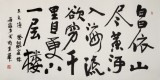 白日依山
尽黄河
入海流
欲穷千
里目更上
一层楼